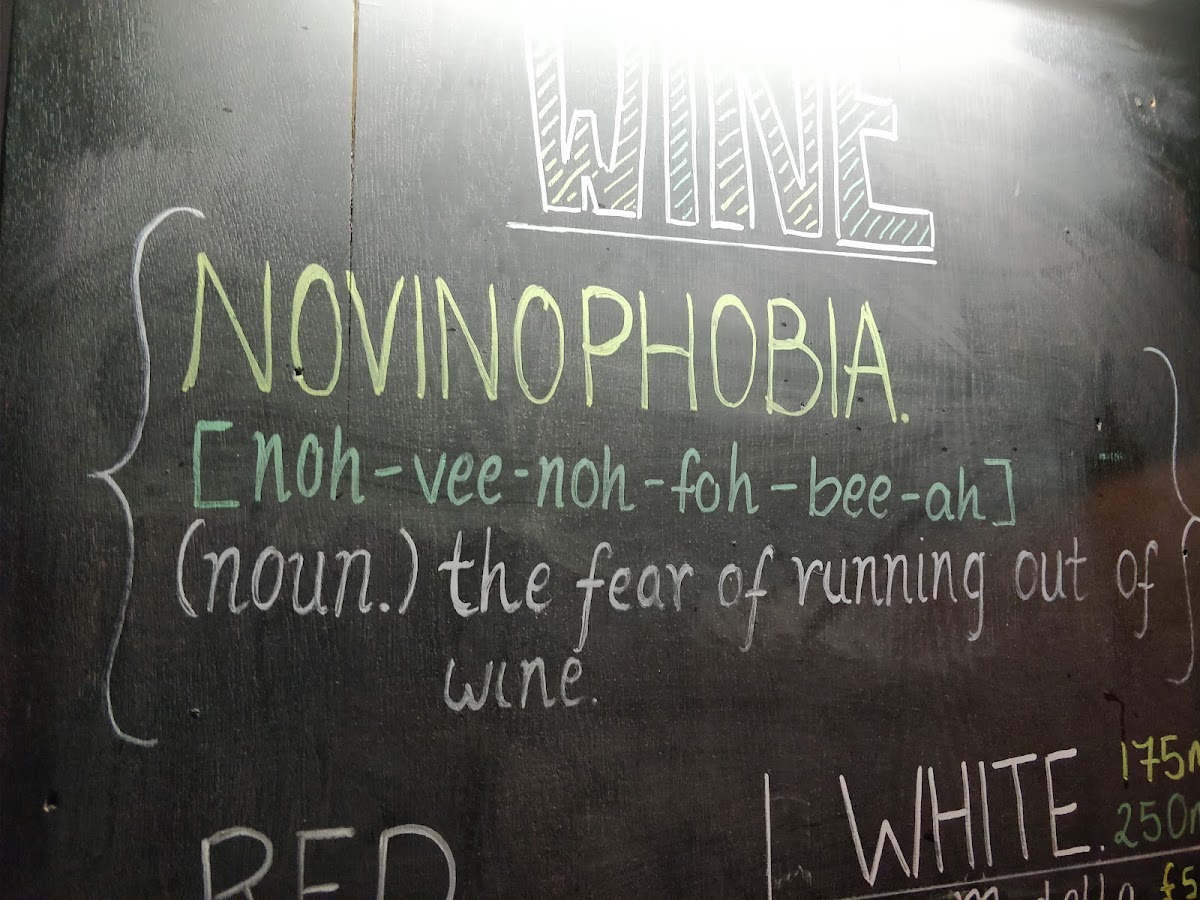 WINE
NOVINOPHOBIA.
[noh-vee-noh-foh-bee-ah]
(noun.) the fear of running out of
wine.
175m
WHITE.
250m
RED
£5